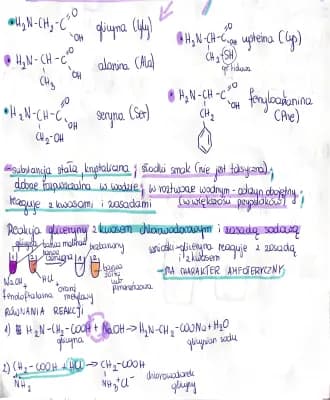 H₂N-CH₂-C
O
OH
glicyna (Gly)
H₂N-CH-C
O
OH
CH₃
alanina (Ala)
H₂N-CH-C
O
OH
CH₂-OH
seryna (Ser)
H₂N-CH-C
O
OH
CH₂-(SH)
cysteina (Cys)
H₂N-CH-C
O
OH
CH₂
fenyloalanina
(Phe)
- substancja stała, krystaliczna, słodki smak (nie jest toksyczna),
dobrze rozpuszczalna w wodzie, w roztworze wodnym - odczyn obojętny,
reaguje z kwasami i zasadami (w większości przypadków)
Reakcja glicyny z kwasem chlorowodorowym i zasadą sodową
glicyna
barwa
malinowa
1
2
NaOH +
HCl +
fenoloftaleina
oranż
metylowy
bezbarwny
barwa
wnioski - glicyna reaguje z zasadą
i z kwasem
- MA CHARAKTER AMFOTERYCZNY
RÓWNANIA REAKCJI
1) H₂N-CH₂-COOH + NaOH → H₂N-CH₂-COONa + H₂O
glicyna
glicynian sodu
2) CH₂-COOH + HCl → CH₂-COOH
NH₂
NH₃⁺Cl⁻
chlorowodorek
glicyny